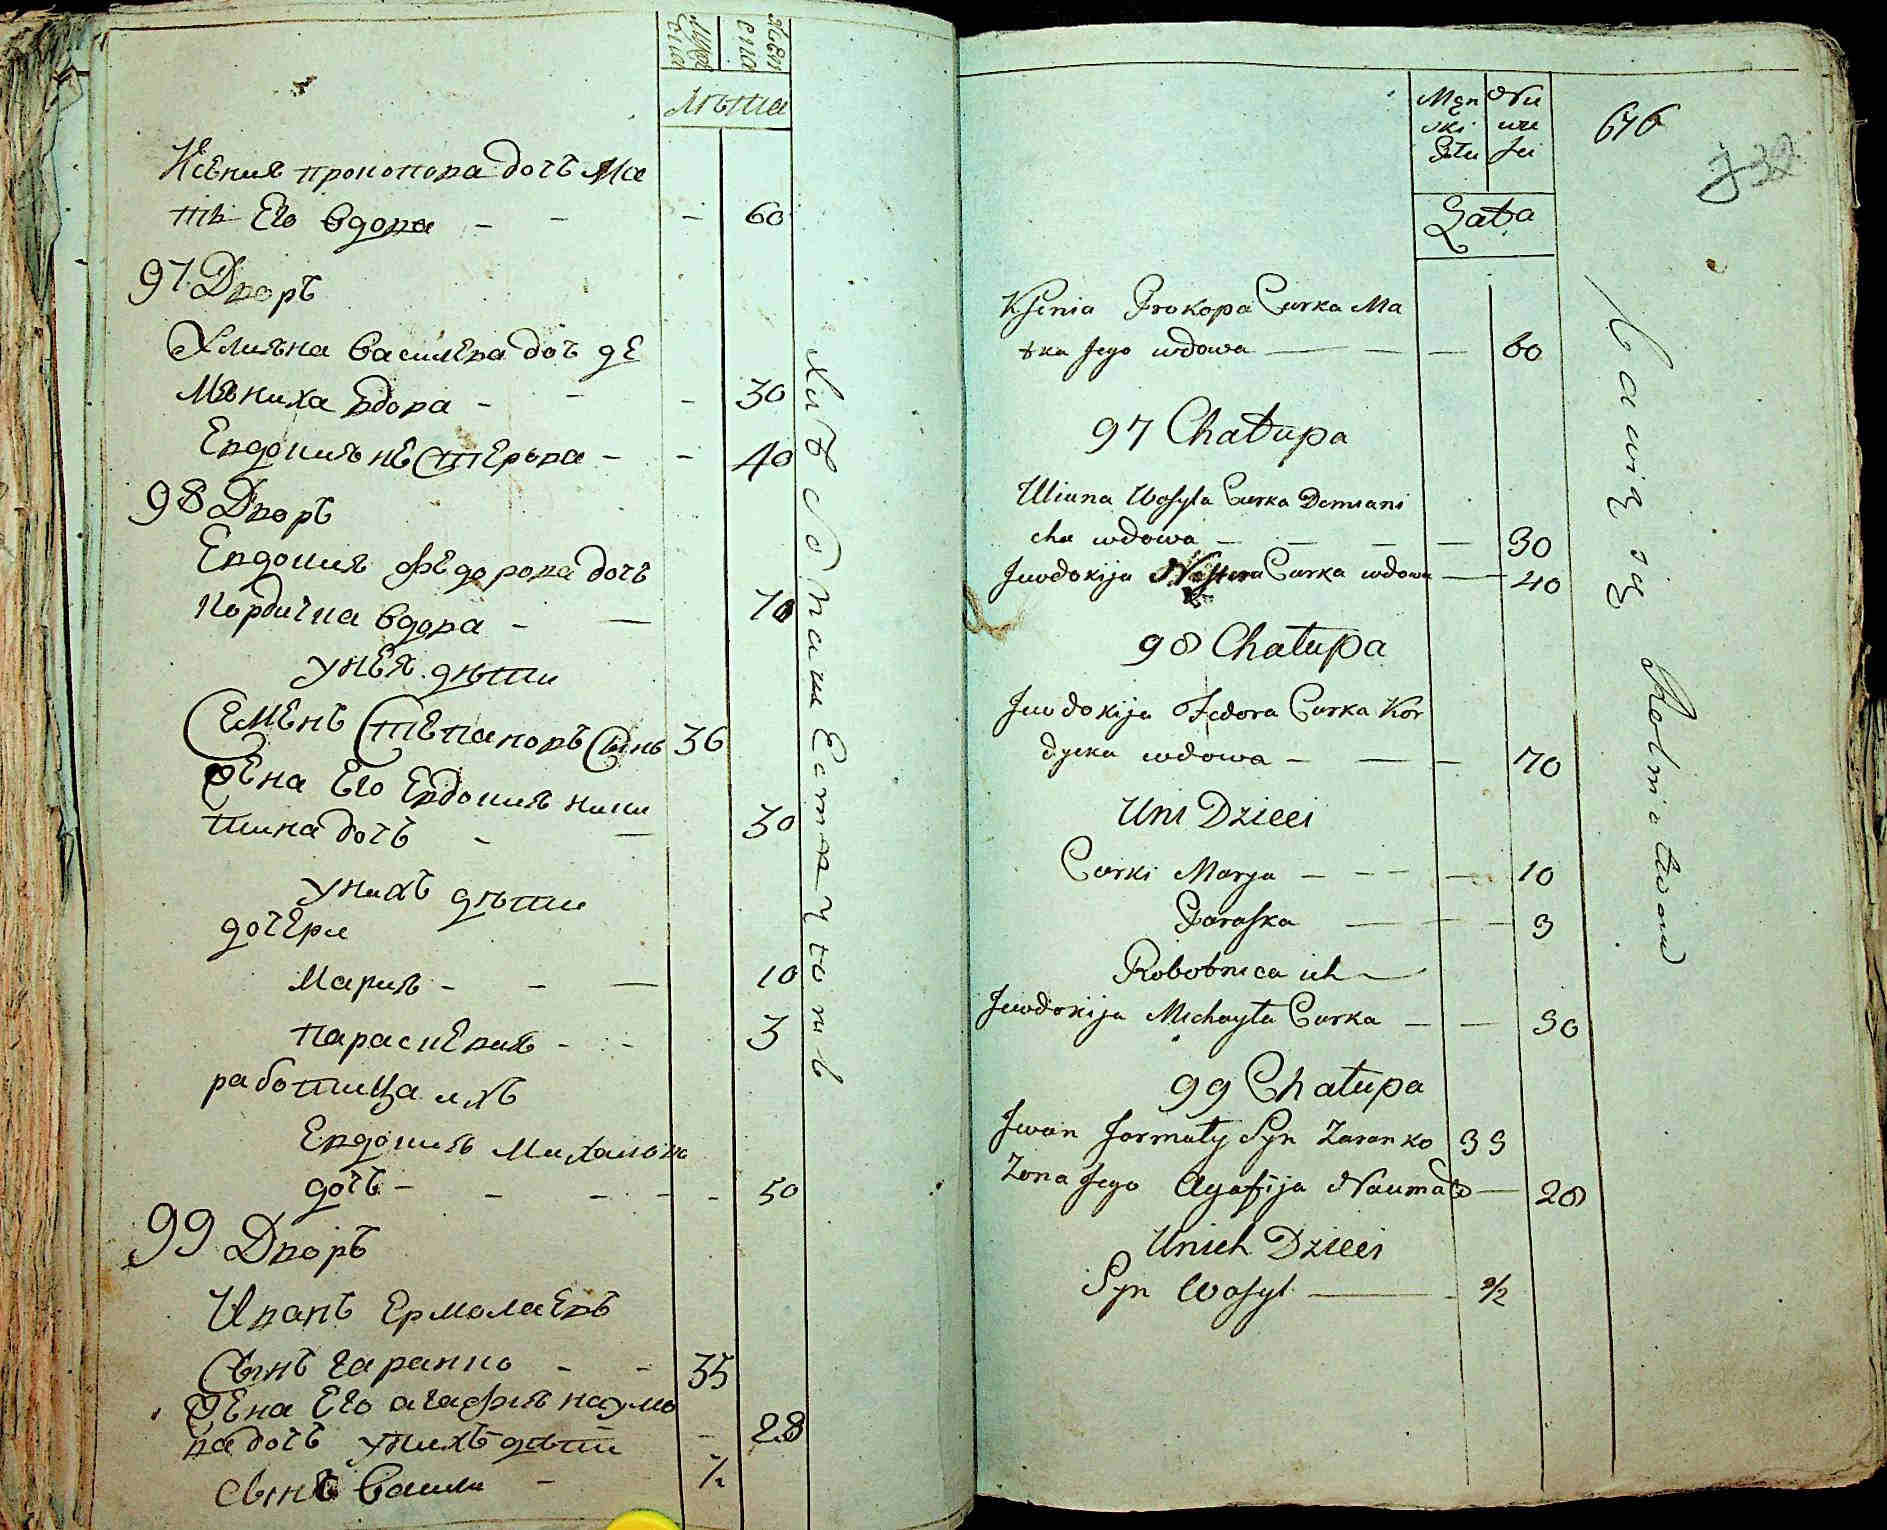 Мужеска
Женска
Лѣта
Ксения прокопова дочъ Ма
ть Его вдова 60
97 Дворъ
Улияна василева доч де
мяниха вдова 30
Евдокия нестерова 40
98 Дворъ
Евдокия федорова дочъ
кордичка вдова 70
у неЯ дѣти
Семенъ Степановъ Сынъ 36
жена Его Евдокия ники
тина дочъ 30
у нихъ дѣти
дочери
Мария 10
параскевия 3
работница ихъ
Евдокия Михайлова
дочъ 50
99 Дворъ
Иванъ Ермолаевъ
Сынъ гаранко 35
жена Его агафия наумо
ва дочъ у нихъ дѣти 28
сынъ васили 1/2
хлебопашествуютъ
646
Męn Nie
ski wie
Płci sci
Łata
Ksenia Prokopa Curka Ma
tka Jego wdowa 60
97 Chałupa
Uliana Wasyla Curka Demiani
cha wdowa 30
Jewdokija Nestera Curka wdowa 40
98 Chałupa
Jewdokija Fedora Curka Kor
dyczka wdowa 70
U ni Dzieci
Curki Marya 10
Paraska 3
Robotnica ich
Jewdokija Michayła Curka 50
99 Chałupa
Jwan Jarmały Syn Zaranko 35
Zona Jego Agafija Nauma C 28
U nich Dzieci
Syn Wasyl 1/2
bawią się Rolnictwem